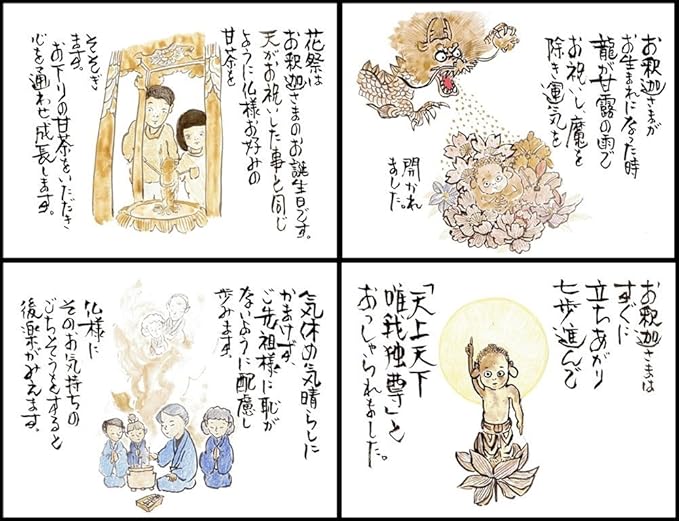 お釈迦さまが
お生まれになった時
龍が甘露の雨で
お祝いし魔を
除き運気を
開かれ
ました。
お釈迦さまは
すぐに
立ちあがり
七歩進んで
「天上天下
唯我独尊」と
おっしゃられました。
花祭は
お釈迦さまのお誕生日です。
天がお祝いした事と同じ
ように仏様お好みの
甘茶を
そそぎ
ます。
お下りの甘茶をいただき
心を通わせ成長します。
気休め気晴らしに
かまけず、
ご先祖様に恥が
ないように配慮し
歩みます。
仏様に
そのお気持ちの
ごちそうをすると
後楽がみえます。